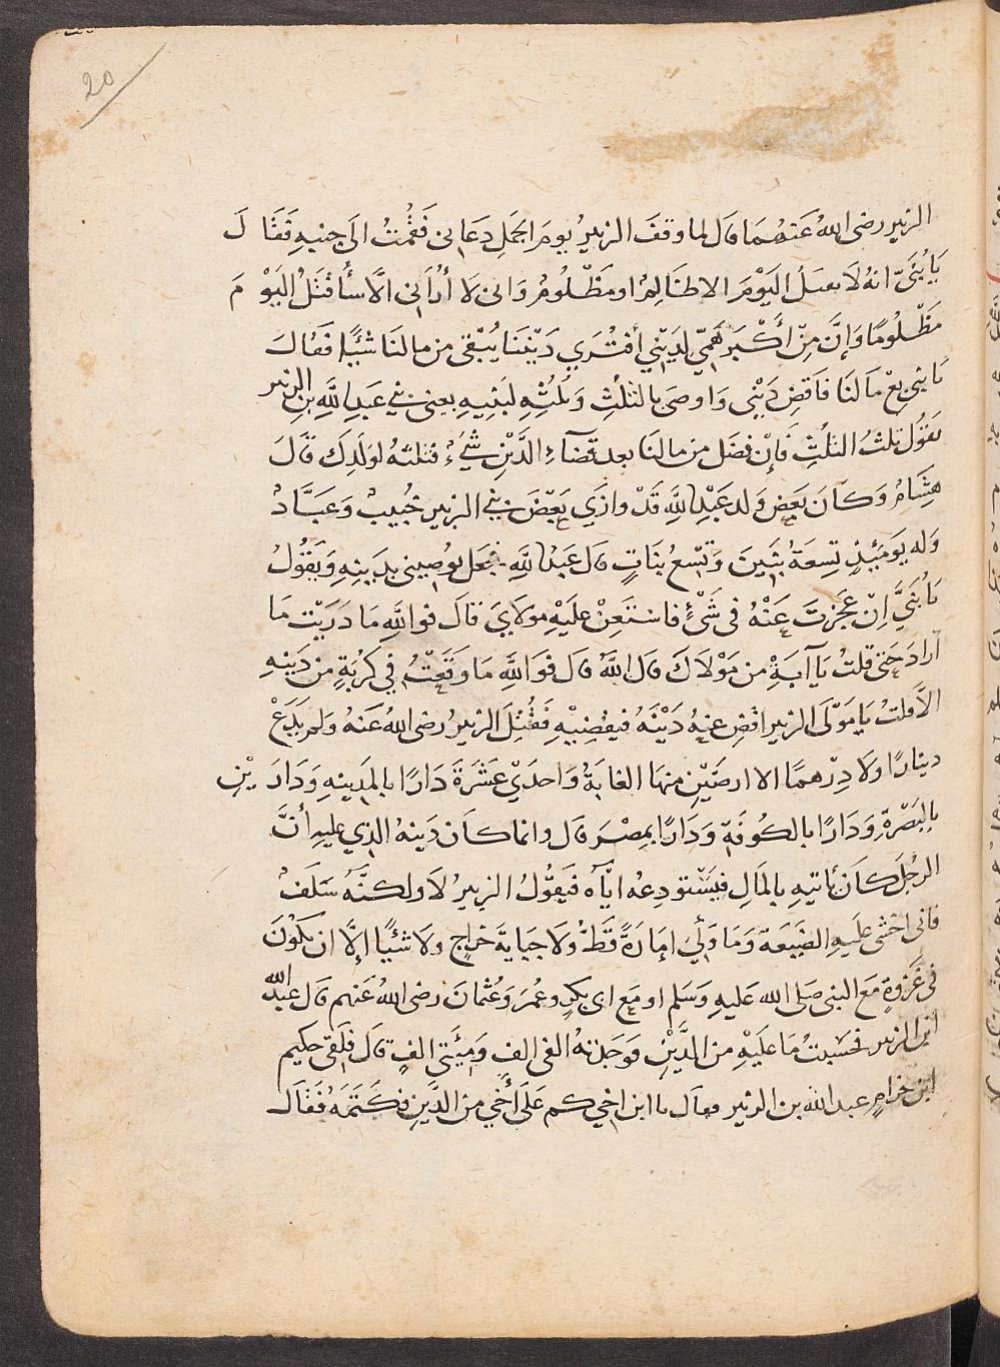 20
الزبير رضى اللهُ عَنهُمَا قَال لما وقفَ الزبيرُ يومَ الجَمَلِ دَعَانى فَقُمْتُ الَى جنبِهِ فَقَالَ
يَا بُنَىَّ انهُ لَا يقتلُ اليَوْمَ الا ظَالِمٌ او مَظْلُومٌ وَانى لَا أُرَانى الَّا سَأُقْتَلُ اليَوْمَ
مَظْلُومًا وَإِنَّ مِنْ أَكْبَرِ هَمِّى لَدَيْنِي أفتُرَي دَيْنَنَا يُبْقى من مالنَا شيْأ فَقَالَ
يَا بنى بِعْ مَالنَا فَاقضِ دَيْنِى وَاوصَى بالثلُثِ وَثُلُثِهِ لبَنِيهِ يعنى بنى عَبدِ اللَّهِ بنِ الزبير
يقوُل ثلثُ الثلُثِ فَإنْ فَضَل من مالنَا بعد قضَآءِ الدَّيْنِ شَيْءٌ فثلثهُ لوَلَدِكَ قَالَ
هِشَامٌ وَكَانَ بَعضُ وَلدِ عَبْدِ اللَّهِ قَدْ وازَي بَعْضَ بنى الزبيرِ خُبيبٌ وَعَبَّادٌ
وَله يَومَئِذٍ تِسعَةُ بَنِينَ وَتِسْعُ بنَاتٍ قَال عَبْدُ اللَّهِ فجعَل يُوصِينى بدَينِهِ وَيَقُولُ
يَا بُنَيَّ اِنْ عَجَزتَ عَنْهُ فى شَىْءٍ فاستعِنْ عَليْهِ مولَايَ قَالَ فواللَّهِ مَا دَرَيْت مَا
أرادَ حَتى قلتُ يَا آبَةِ من مَوْلَاكَ قَال اللَّهُ قَال فَوَاللَّهِ مَا وَقَعْتُ فِي كُرْبَةٍ من دَينِهِ
الَّا قلتُ يَا مَوْلَى الزبيرِ اقضِ عنهُ دَيْنَهُ فيقضِيْهِ فَقُتِلَ الزبيرُ رضى اللهُ عَنهُ وَلم يَدَعْ
دينارًا ولا دِرْهَمًا الا ارضَيْنِ منهَا الغابَةُ وَاحدَيْ عَشَرَةَ دَارًا بالمَدِينهِ وَدَارَيْنِ
بالبَصْرَةِ وَدَارًا بالكُوفَةِ وَدَارًا بمِصْرَ قَال وانما كاَن دَينهُ الذِي عليهِ أنَّ
الرجُلَ كَانَ يَاتيهِ بالمَالِ فيَسْتودِعُه ايَّاه فيَقُولُ الزبيرُ لَا ولكنَّهُ سَلَفٌ
فانى اخشَى عَلَيهِ الضَيعَةَ وَمَا وَلِيَ إِمَارَةً قَطُّ وَلَا جبَايةَ خَرَاجٍ ولَا شئيًا إلَّا ان يَكُوْنَ
فى غَزوةٍ مَع النبى صَلى الله عَليهِ وَسَلم او مَع ابى بكرٍ وعُمَرَ وَعُثمانَ رضى اللهُ عَنهم قَال عَبدُ الله
ابن الزبير فحسَبتُ مَا عَليْهِ من الدَّيْنِ فوَجَدتهُ الفى الفٍ وَمِئَتى الفٍ قَال فلَقىَ حكيم
ابن حزامٍ عبد الله بن الزبير فقال يا ابن اخِي كم عَلَى أَخي من الدَّينِ فَكَتَمَهُ فَقَالَ